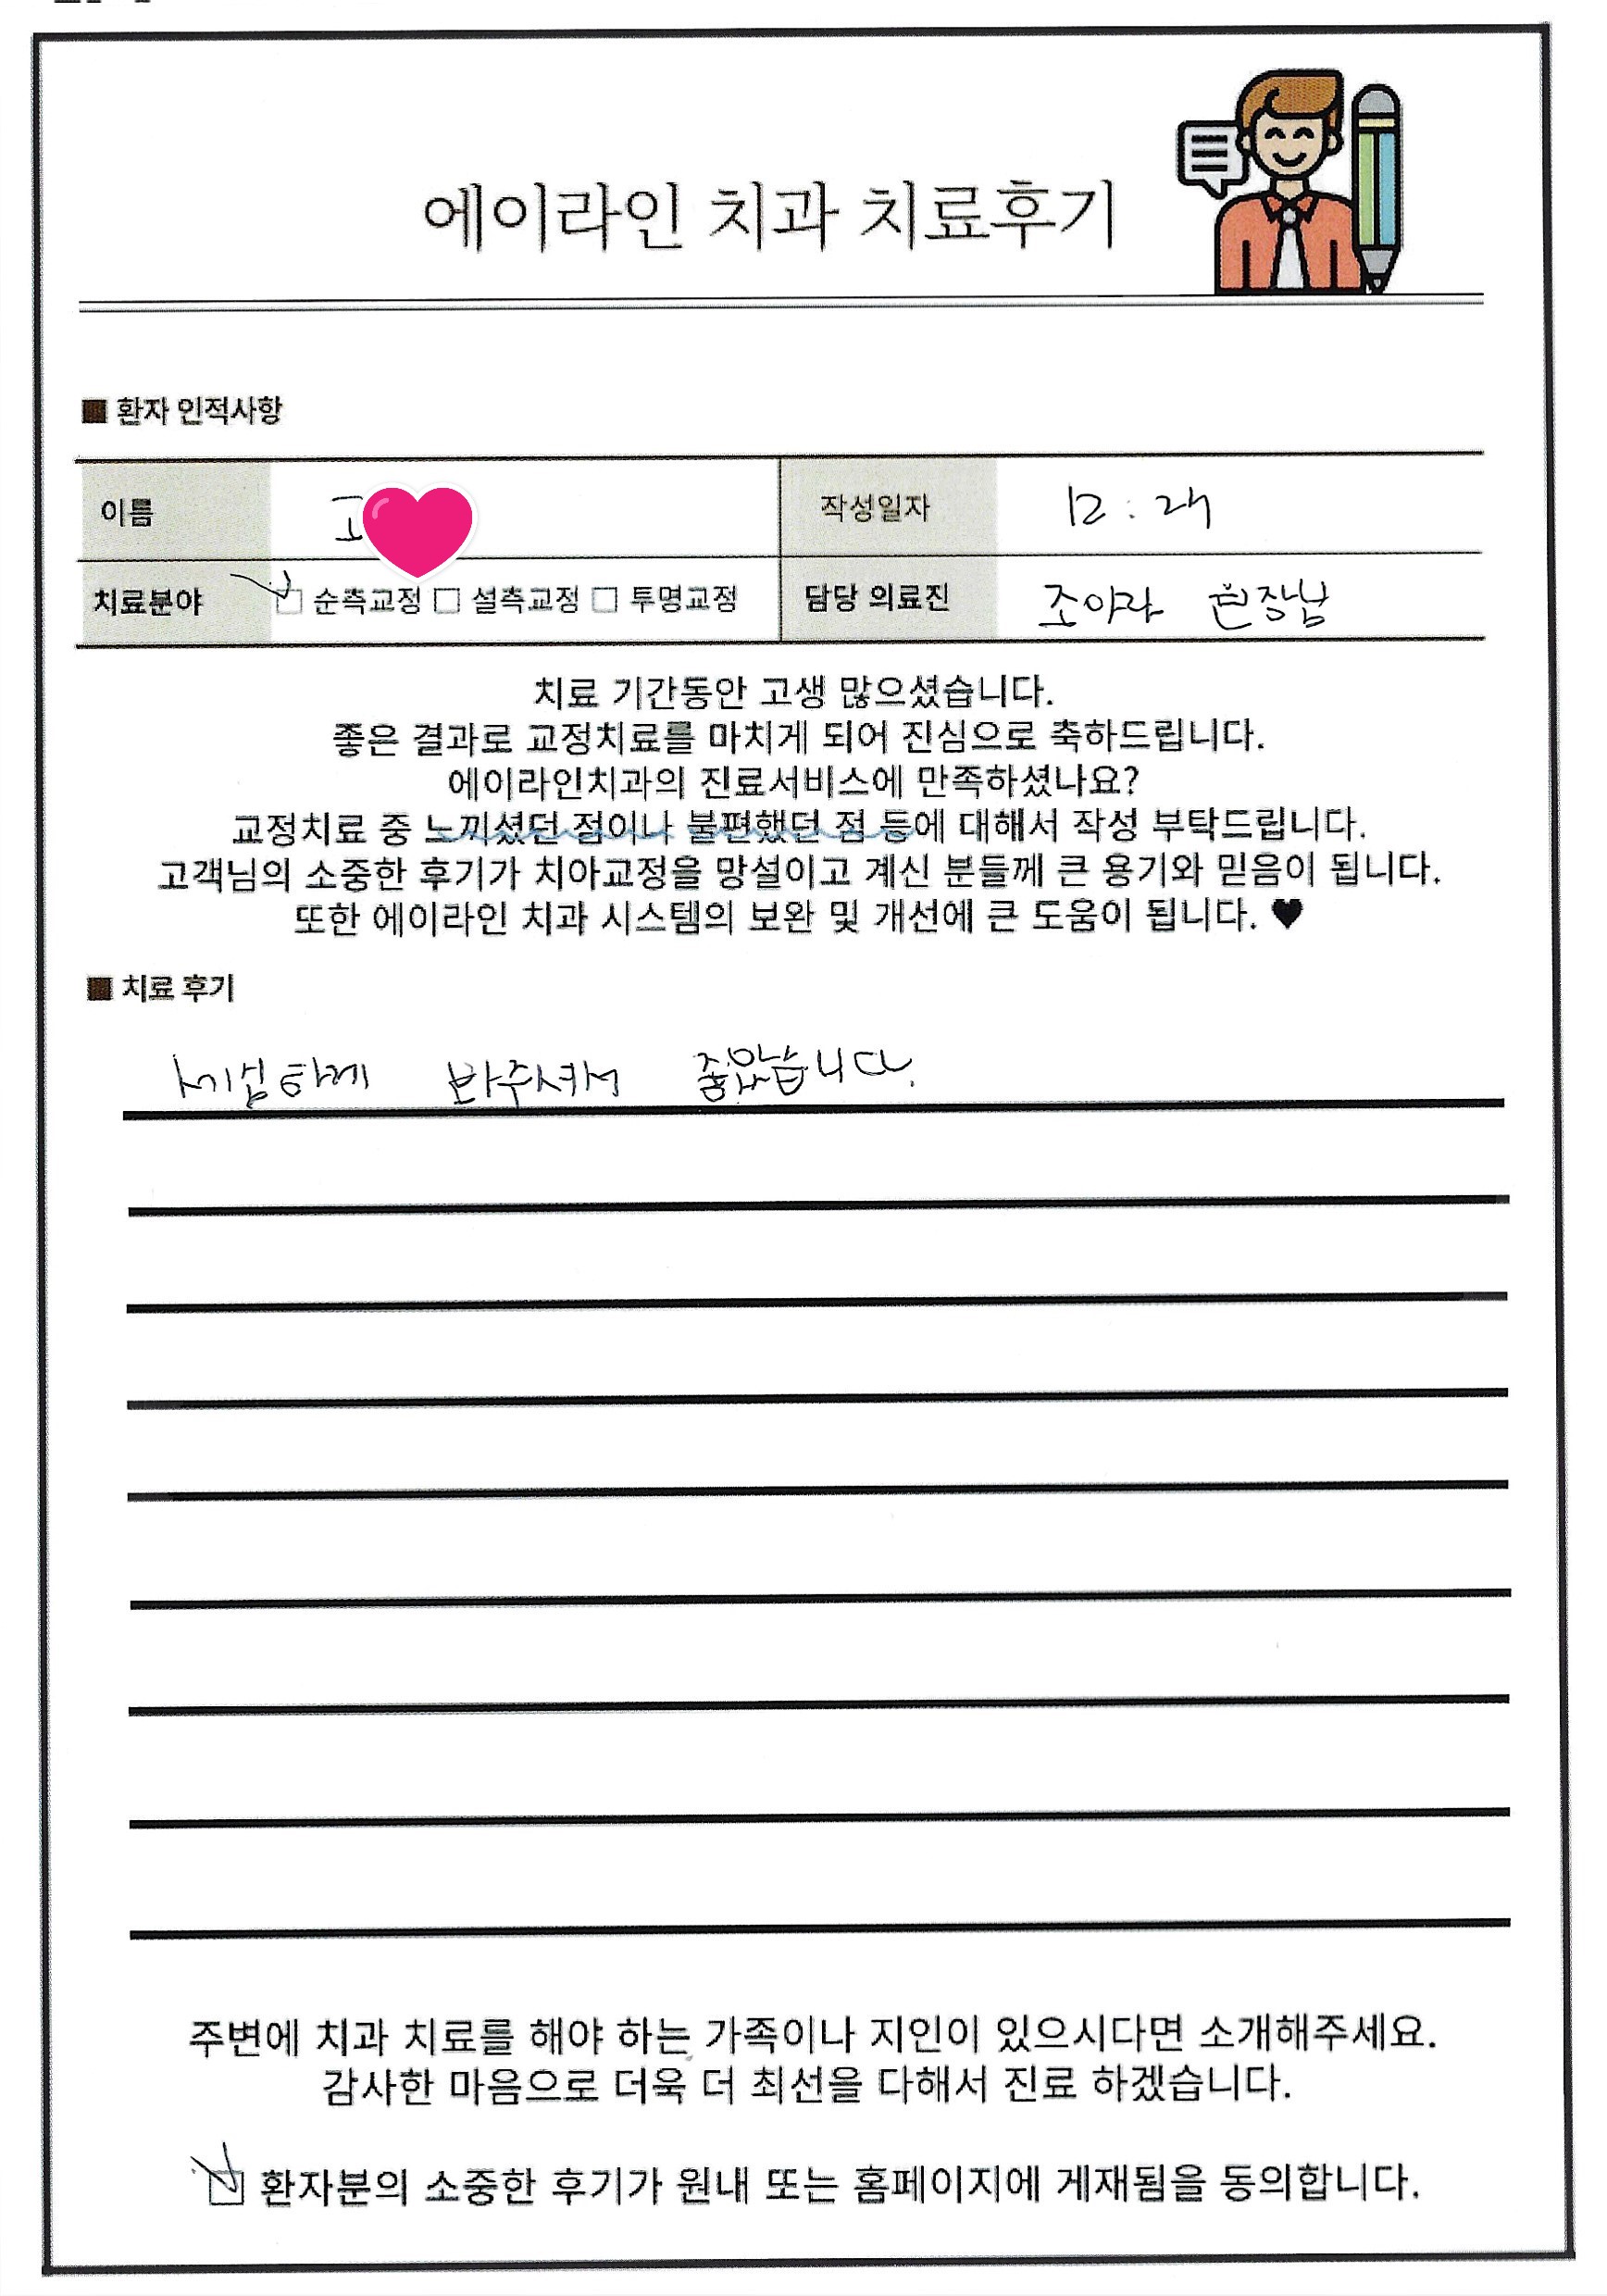 에이라인 치과 치료후기
■ 환자 인적사항
이름 고 작성일자 12 : 24
치료분야 ☑ 순측교정 ☐ 설측교정 ☐ 투명교정 담당 의료진 조아라 원장님
치료 기간동안 고생 많으셨습니다.
좋은 결과로 교정치료를 마치게 되어 진심으로 축하드립니다.
에이라인치과의 진료서비스에 만족하셨나요?
교정치료 중 느끼셨던 점이나 불편했던 점 등에 대해서 작성 부탁드립니다.
고객님의 소중한 후기가 치아교정을 망설이고 계신 분들께 큰 용기와 믿음이 됩니다.
또한 에이라인 치과 시스템의 보완 및 개선에 큰 도움이 됩니다. ♥
■ 치료 후기
세심하게 봐주셔서 좋았습니다.
주변에 치과 치료를 해야 하는 가족이나 지인이 있으시다면 소개해주세요.
감사한 마음으로 더욱 더 최선을 다해서 진료 하겠습니다.
☑ 환자분의 소중한 후기가 원내 또는 홈페이지에 게재됨을 동의합니다.